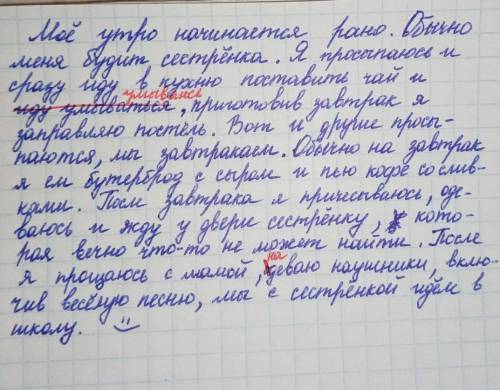 Моё утро начинается рано. Обычно
меня будит сестрёнка. Я просыпаюсь и
сразу иду в кухню поставить чай и
умываюсь
иду умываться, приготовив завтрак я
заправляю постель. Вот и другие просы-
паются, мы завтракаем. Обычно на завтрак
я ем бутерброд с сыром и пью кофе со слив-
ками. После завтрака я причесываюсь, оде-
ваюсь и жду у двери сестрёнку, кото-
рая вечно что-то не может найти. После
я прощаюсь с мамой, надеваю наушники, вклю-
чив весёлую песню, мы с сестрёнкой идём в
школу.